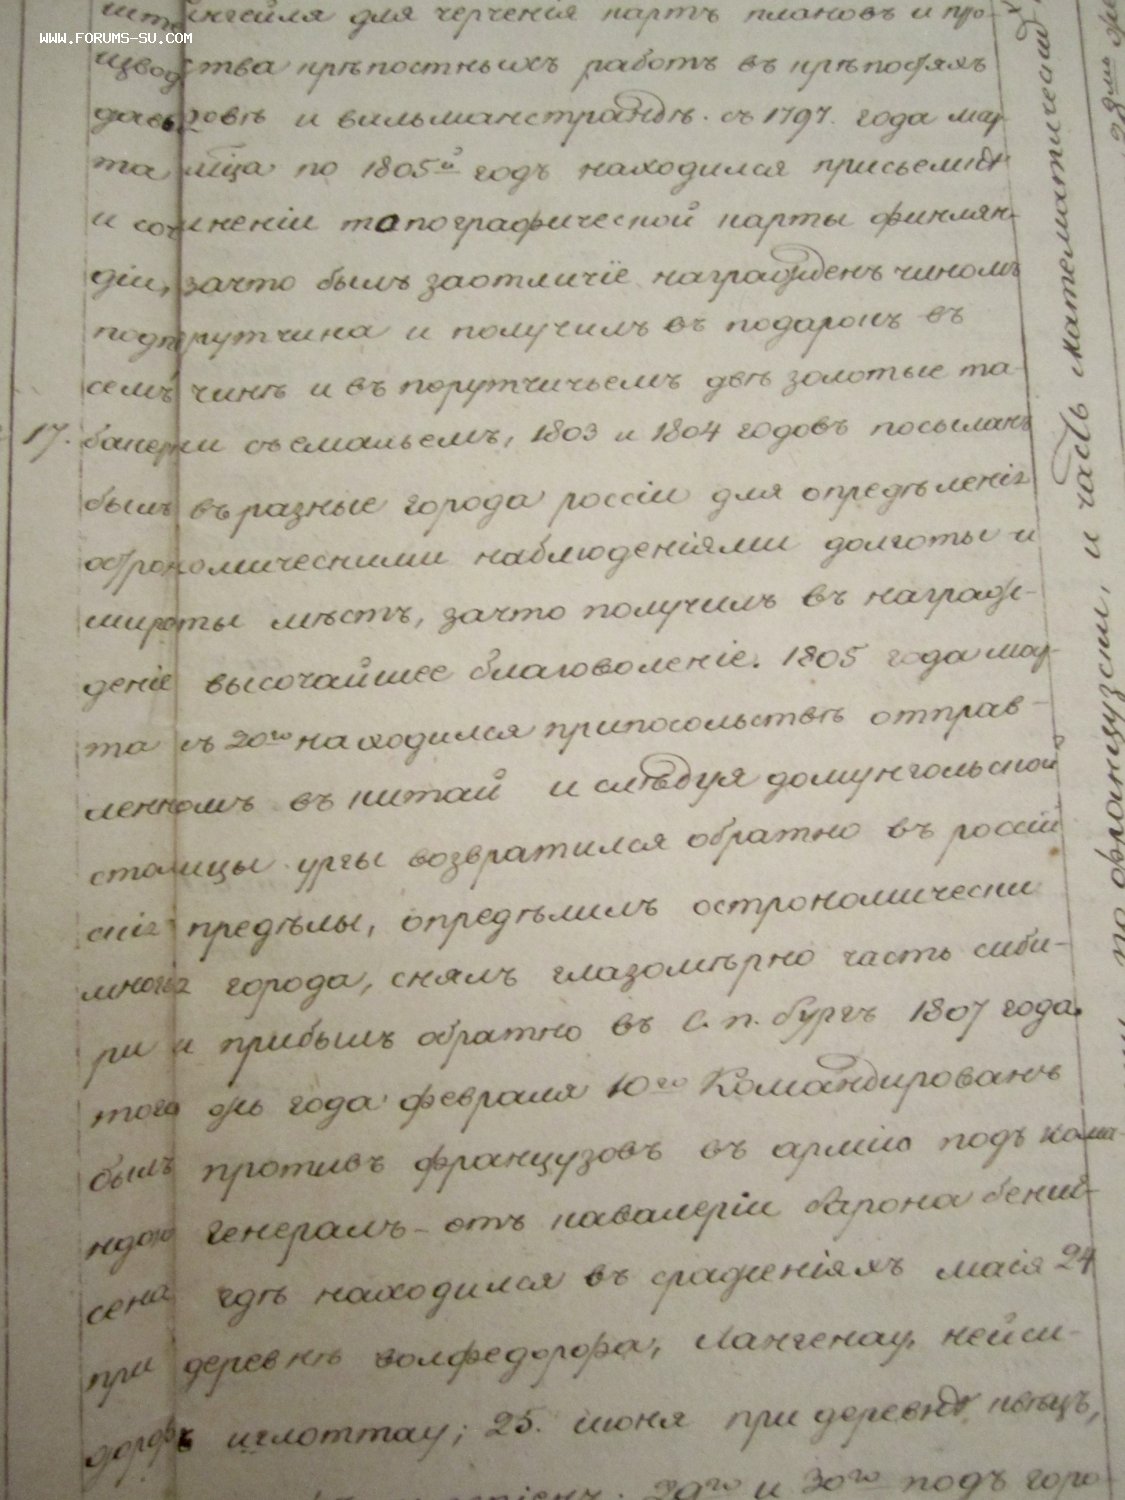 WWW.FORUMS-SU.COM
штейнгейля для черченія картъ плановъ и про-
изводства крѣпостныхъ работъ въ крѣпостяхъ
давыдовѣ и вильманстрандѣ. съ 1797. года мар
та мца по 1805й годъ находился присьемкѣ
и сочиненіи топографической карты финлян-
діи, зачто былъ заотличіе награжденъ чиномъ
подпорутчика и получилъ въ подарокъ въ
семъ чинѣ и въ порутчичьемъ двѣ золотые та-
17. бакерки съемальемъ, 1803 и 1804 годовъ посыланъ
былъ въ разные города россіи для опредѣленія
острономическими наблюденіями долготы и
широты мѣстъ, зачто получилъ въ награж-
деніе высочайшее благоволеніе. 1805 года мар-
та съ 20го находился припосольствѣ отправ-
ленномъ въ китай и слѣдуя домунгольской
столицы урги возвратился обратно въ россій
скія предѣлы, опредѣлилъ острономически
многія города, снялъ глазомѣрно часть сиби-
ри и прибылъ обратно въ С. п. бургъ 1807 года.
того жъ года февраля 10го Командированъ
былъ противъ французовъ въ армію подъ кома-
ндою генералъ-отъ кавалеріи барона бениг-
сена гдѣ находился въ сраженіяхъ маія 24
при деревнѣ волфсдорфа, Лангенау, нейси-
дорфъ иглоттау; 25. июня при деревнѣ
29го и 30го подъ горо-
и часть математической
по французски,